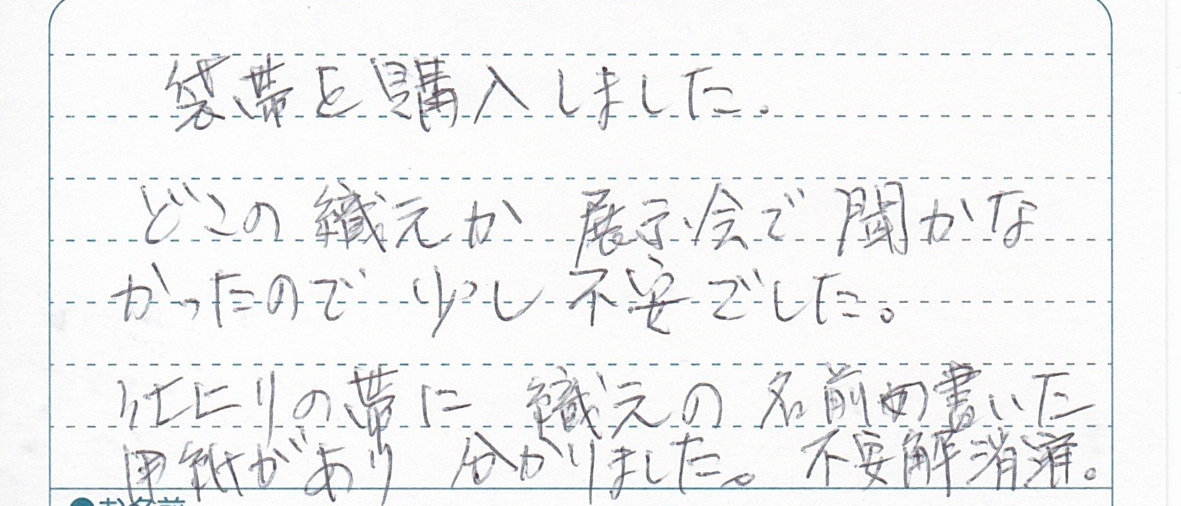 袋帯を購入しました。
どこの織元か 展示会で聞かな
かったので 少し不安でした。
仕上りの帯に 織元の名前の書いた
用紙があり 分かりました。不安解消
●お名前